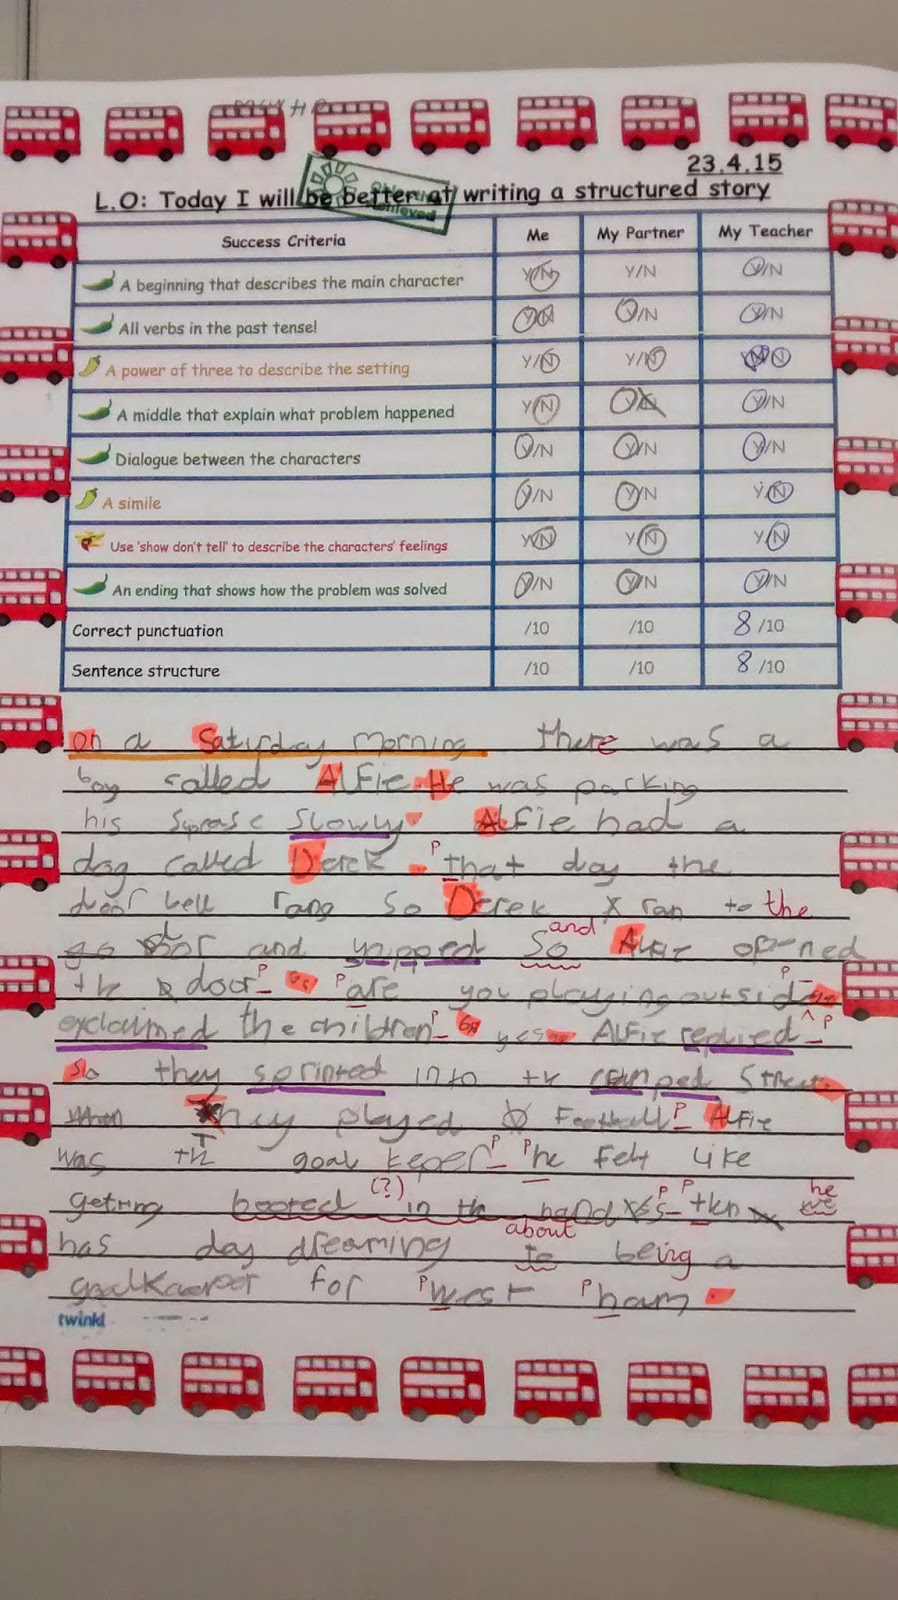 23.4.15
L.O: Today I will be better at writing a structured story
Success Criteria Me My Partner My Teacher
A beginning that describes the main character Y/N Y/N Y/N
All verbs in the past tense! Y/N Y/N Y/N
A power of three to describe the setting Y/N Y/N Y/N
A middle that explain what problem happened Y/N Y/N Y/N
Dialogue between the characters Y/N Y/N Y/N
A simile Y/N Y/N Y/N
Use 'show don't tell' to describe the characters' feelings Y/N Y/N Y/N
An ending that shows how the problem was solved Y/N Y/N Y/N
Correct punctuation /10 /10 8 /10
Sentence structure /10 /10 8 /10
on a Saturday morning there was a
boy called Alfie. He was packing
his slowly. Alfie had a
dog called Derek. P that day the
door bell rang so Derek ran to the
and
door and yapped so Alfie opened
the door P P are you playing outside P
exclaimed the children P yes Alfie replied P
so they sprinted into the street.
they played Football P Alfie
was the goal keper P P he felt like
(?) P P he
getting booted in the then we
about
has day dreaming to being a
goalkeeper for P west P ham.
twinkl